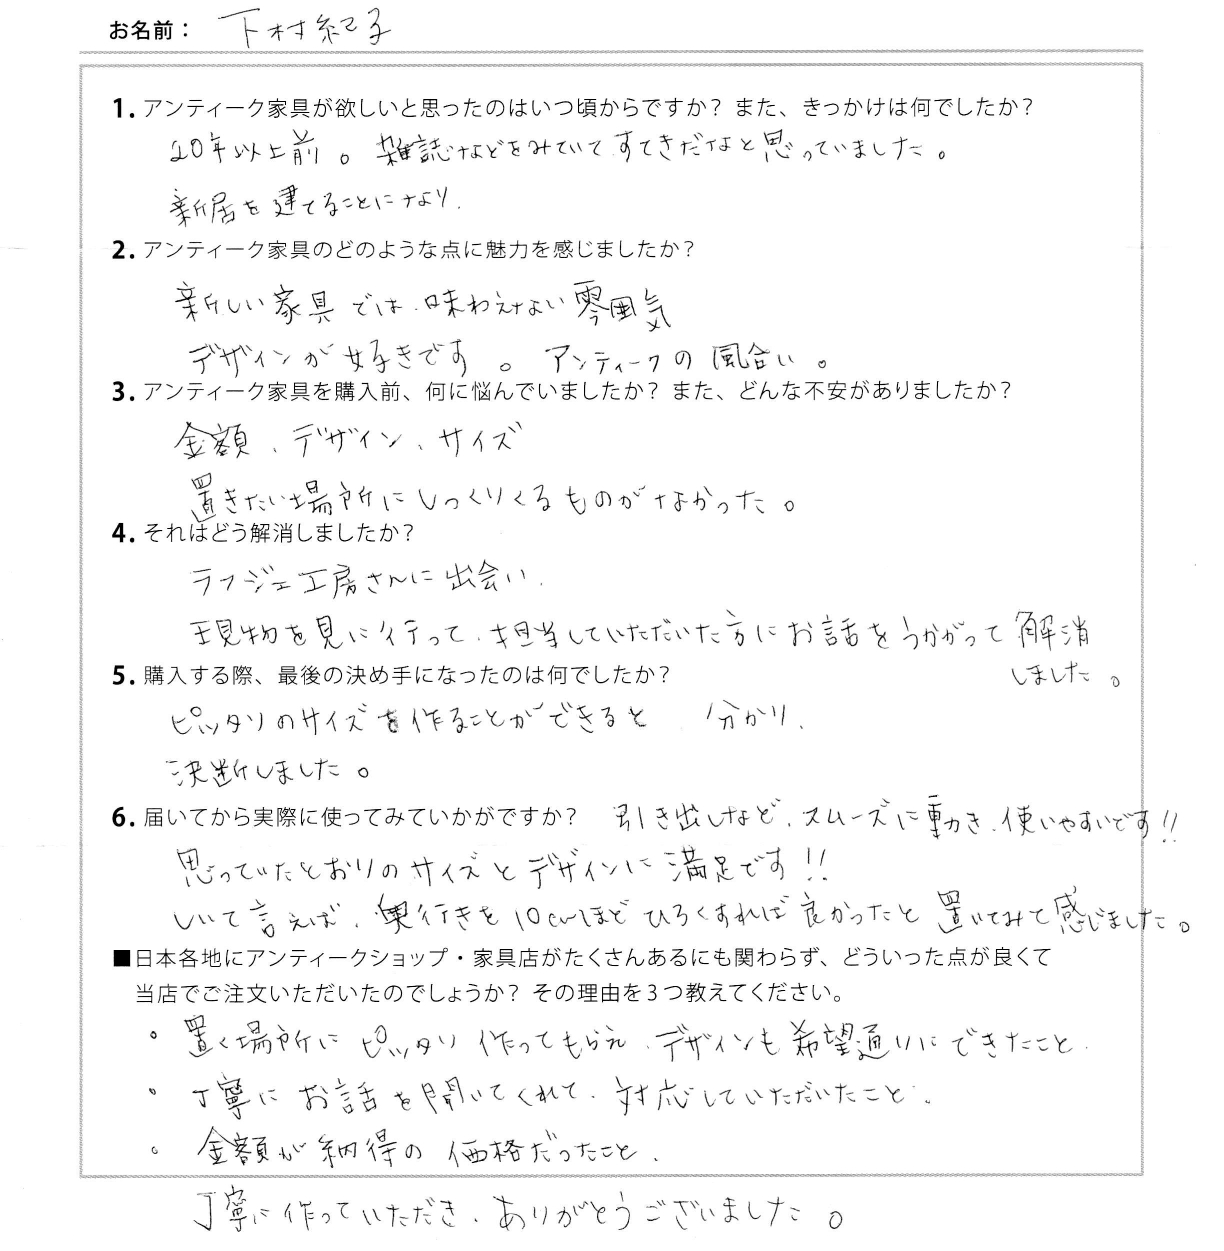 お名前： 下村紀子
1. アンティーク家具が欲しいと思ったのはいつ頃からですか？ また、きっかけは何でしたか？
20年以上前。雑誌などをみていてすてきだなと思っていました。
新居を建てることになり、
2. アンティーク家具のどのような点に魅力を感じましたか？
新しい家具では、味わえない雰囲気
デザインが好きです。アンティークの風合い。
3. アンティーク家具を購入前、何に悩んでいましたか？ また、どんな不安がありましたか？
金額、デザイン、サイズ
置きたい場所にしっくりくるものがなかった。
4. それはどう解消しましたか？
ラフジェ工房さんに出会い、
現物を見に行って、担当していただいた方にお話をうかがって解消
しました。
5. 購入する際、最後の決め手になったのは何でしたか？
ピッタリのサイズを作ることができると、分かり、
決断しました。
6. 届いてから実際に使ってみていかがですか？ 引き出しなど、スムーズに動き、使いやすいです!!
思っていたとおりのサイズとデザインに満足です!!
しいて言えば、奥行きを10cmほどひろくすれば良かったと置いてみて感じました。
■日本各地にアンティークショップ・家具店がたくさんあるにも関わらず、どういった点が良くて
当店でご注文いただいたのでしょうか？ その理由を３つ教えてください。
・置く場所にピッタリ作ってもらえ、デザインも希望通りにできたこと、
・丁寧にお話を聞いてくれて、対応していただいたこと、
・金額が納得の価格だったこと、
丁寧に作っていただき、ありがとうございました。